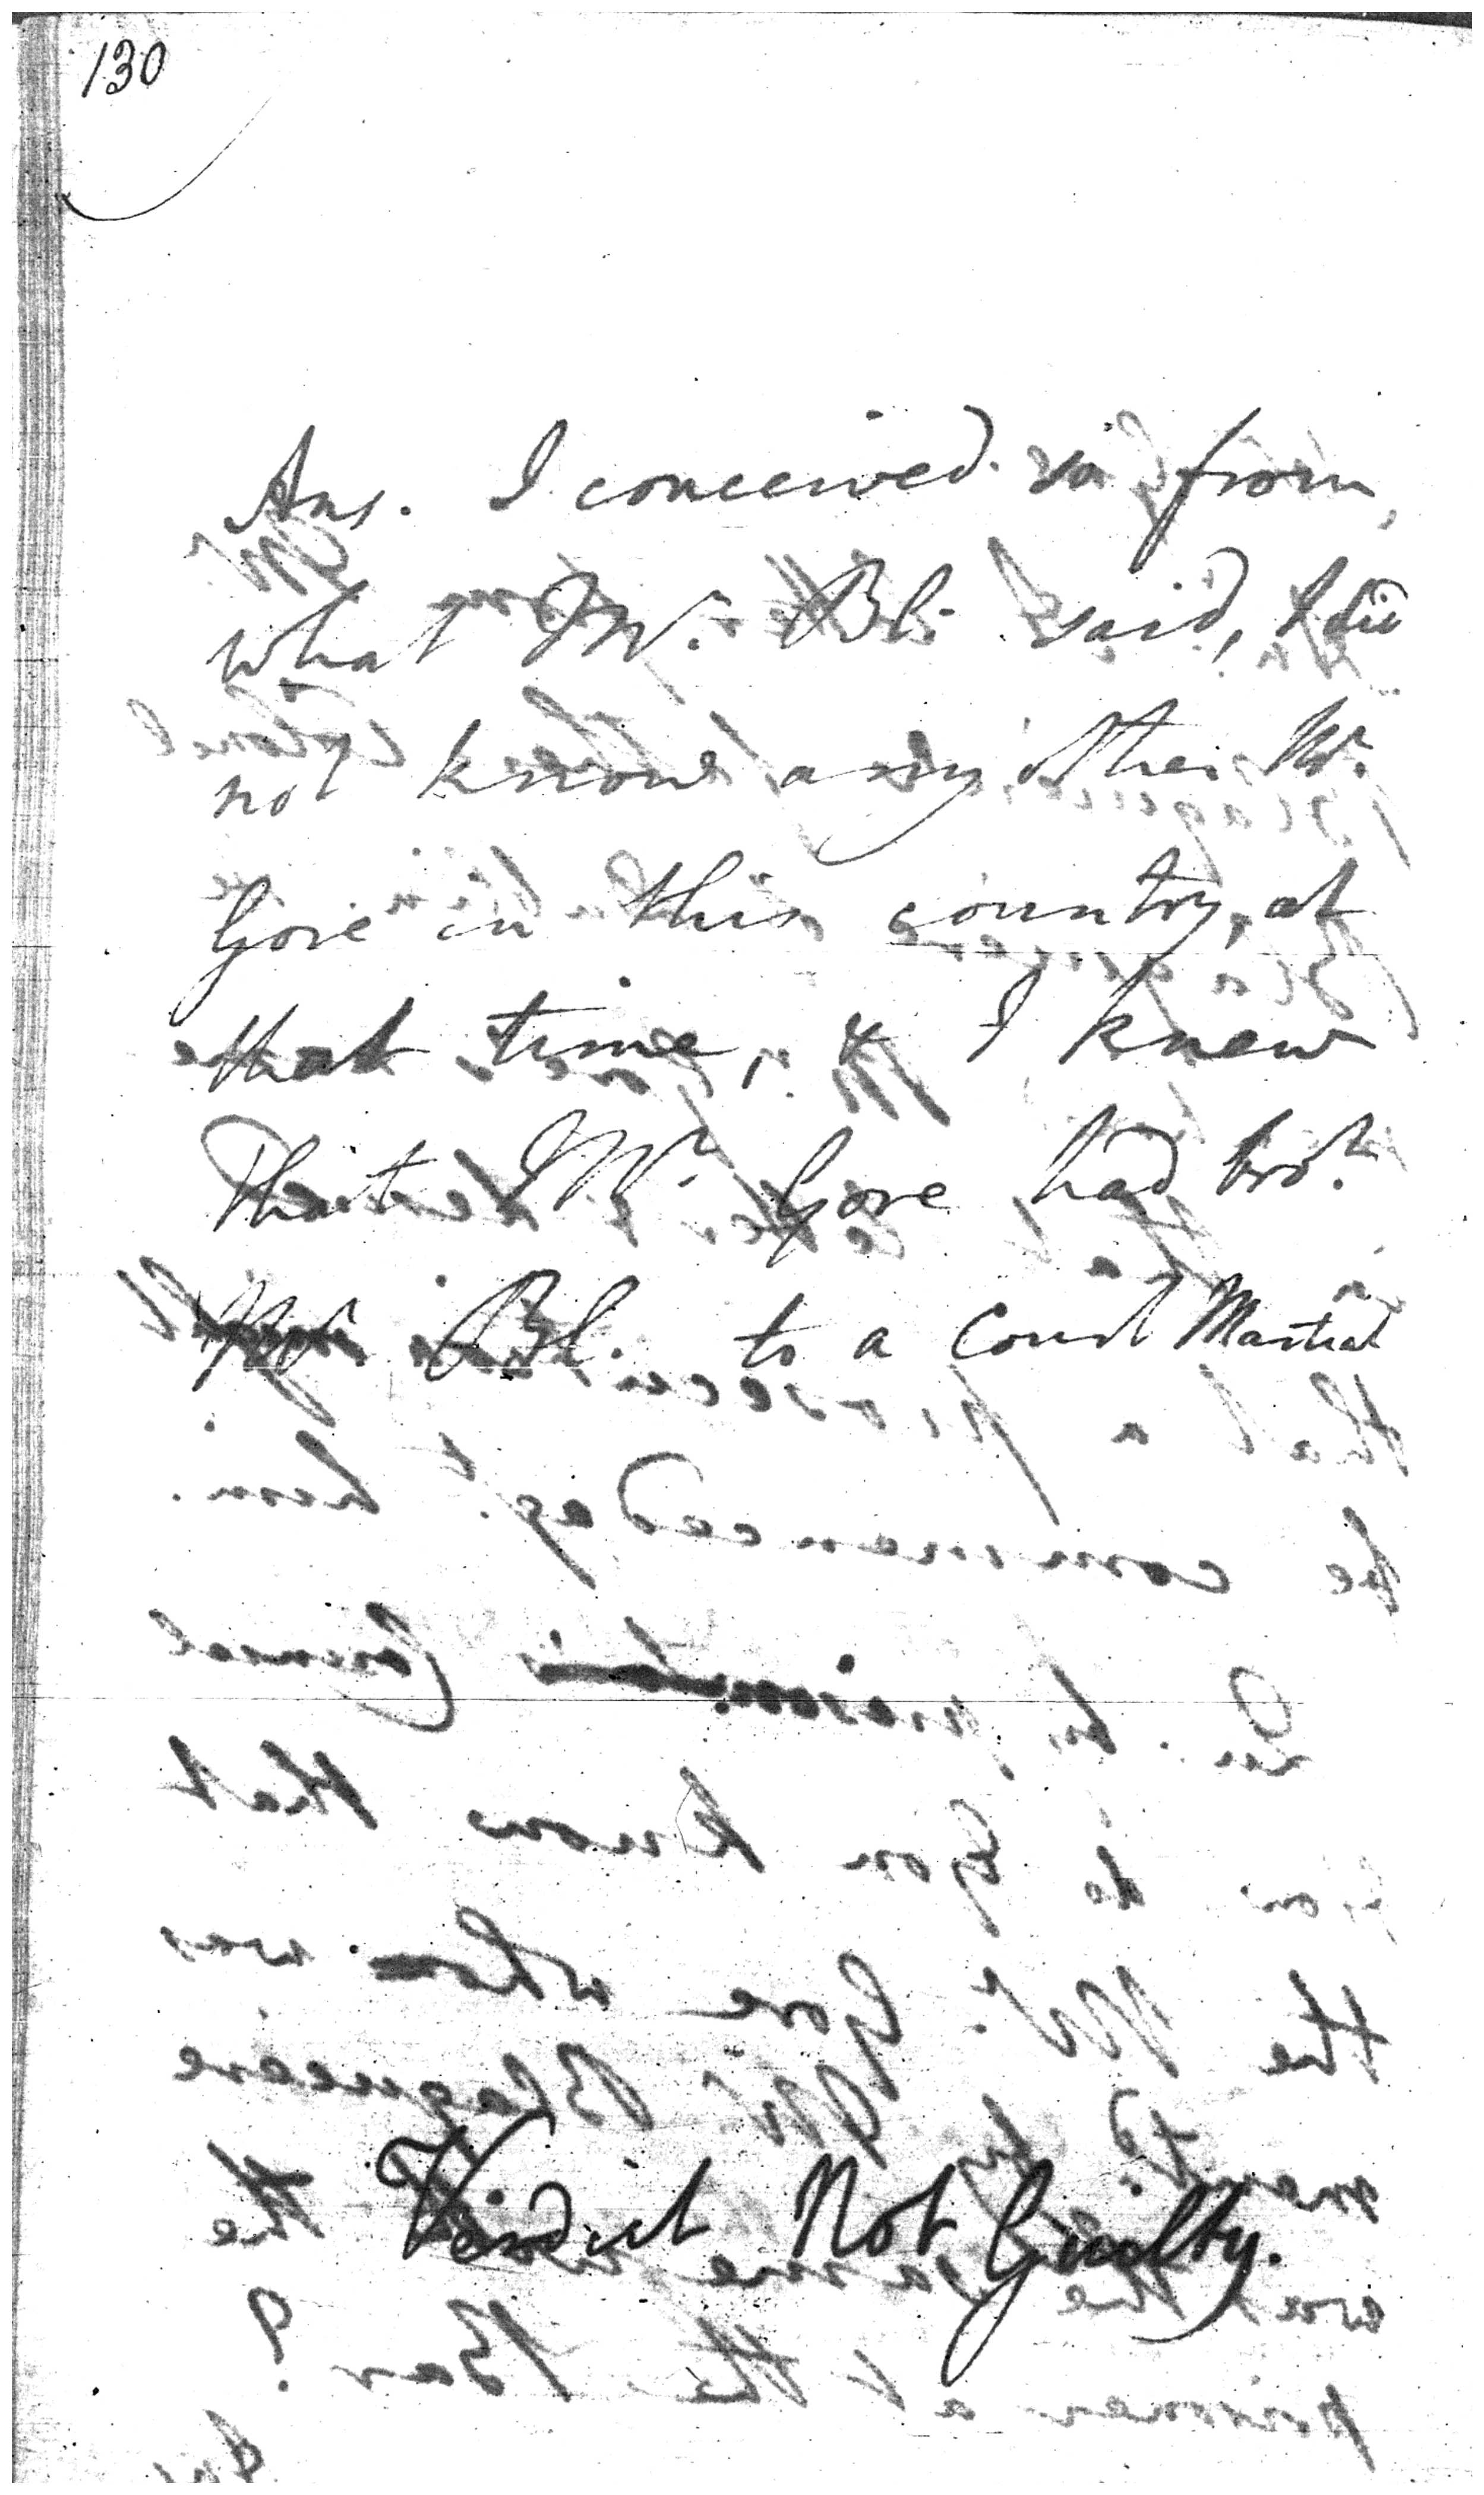 130
Ans. I conceived so from,
what Mr. Bl. said, I did
not know any other Mr.
Gore in this country, at
that time, & I knew
That Mr. Gore had bro.t
Mr. Bl. to a Court Martial
Verdict Not Guilty.